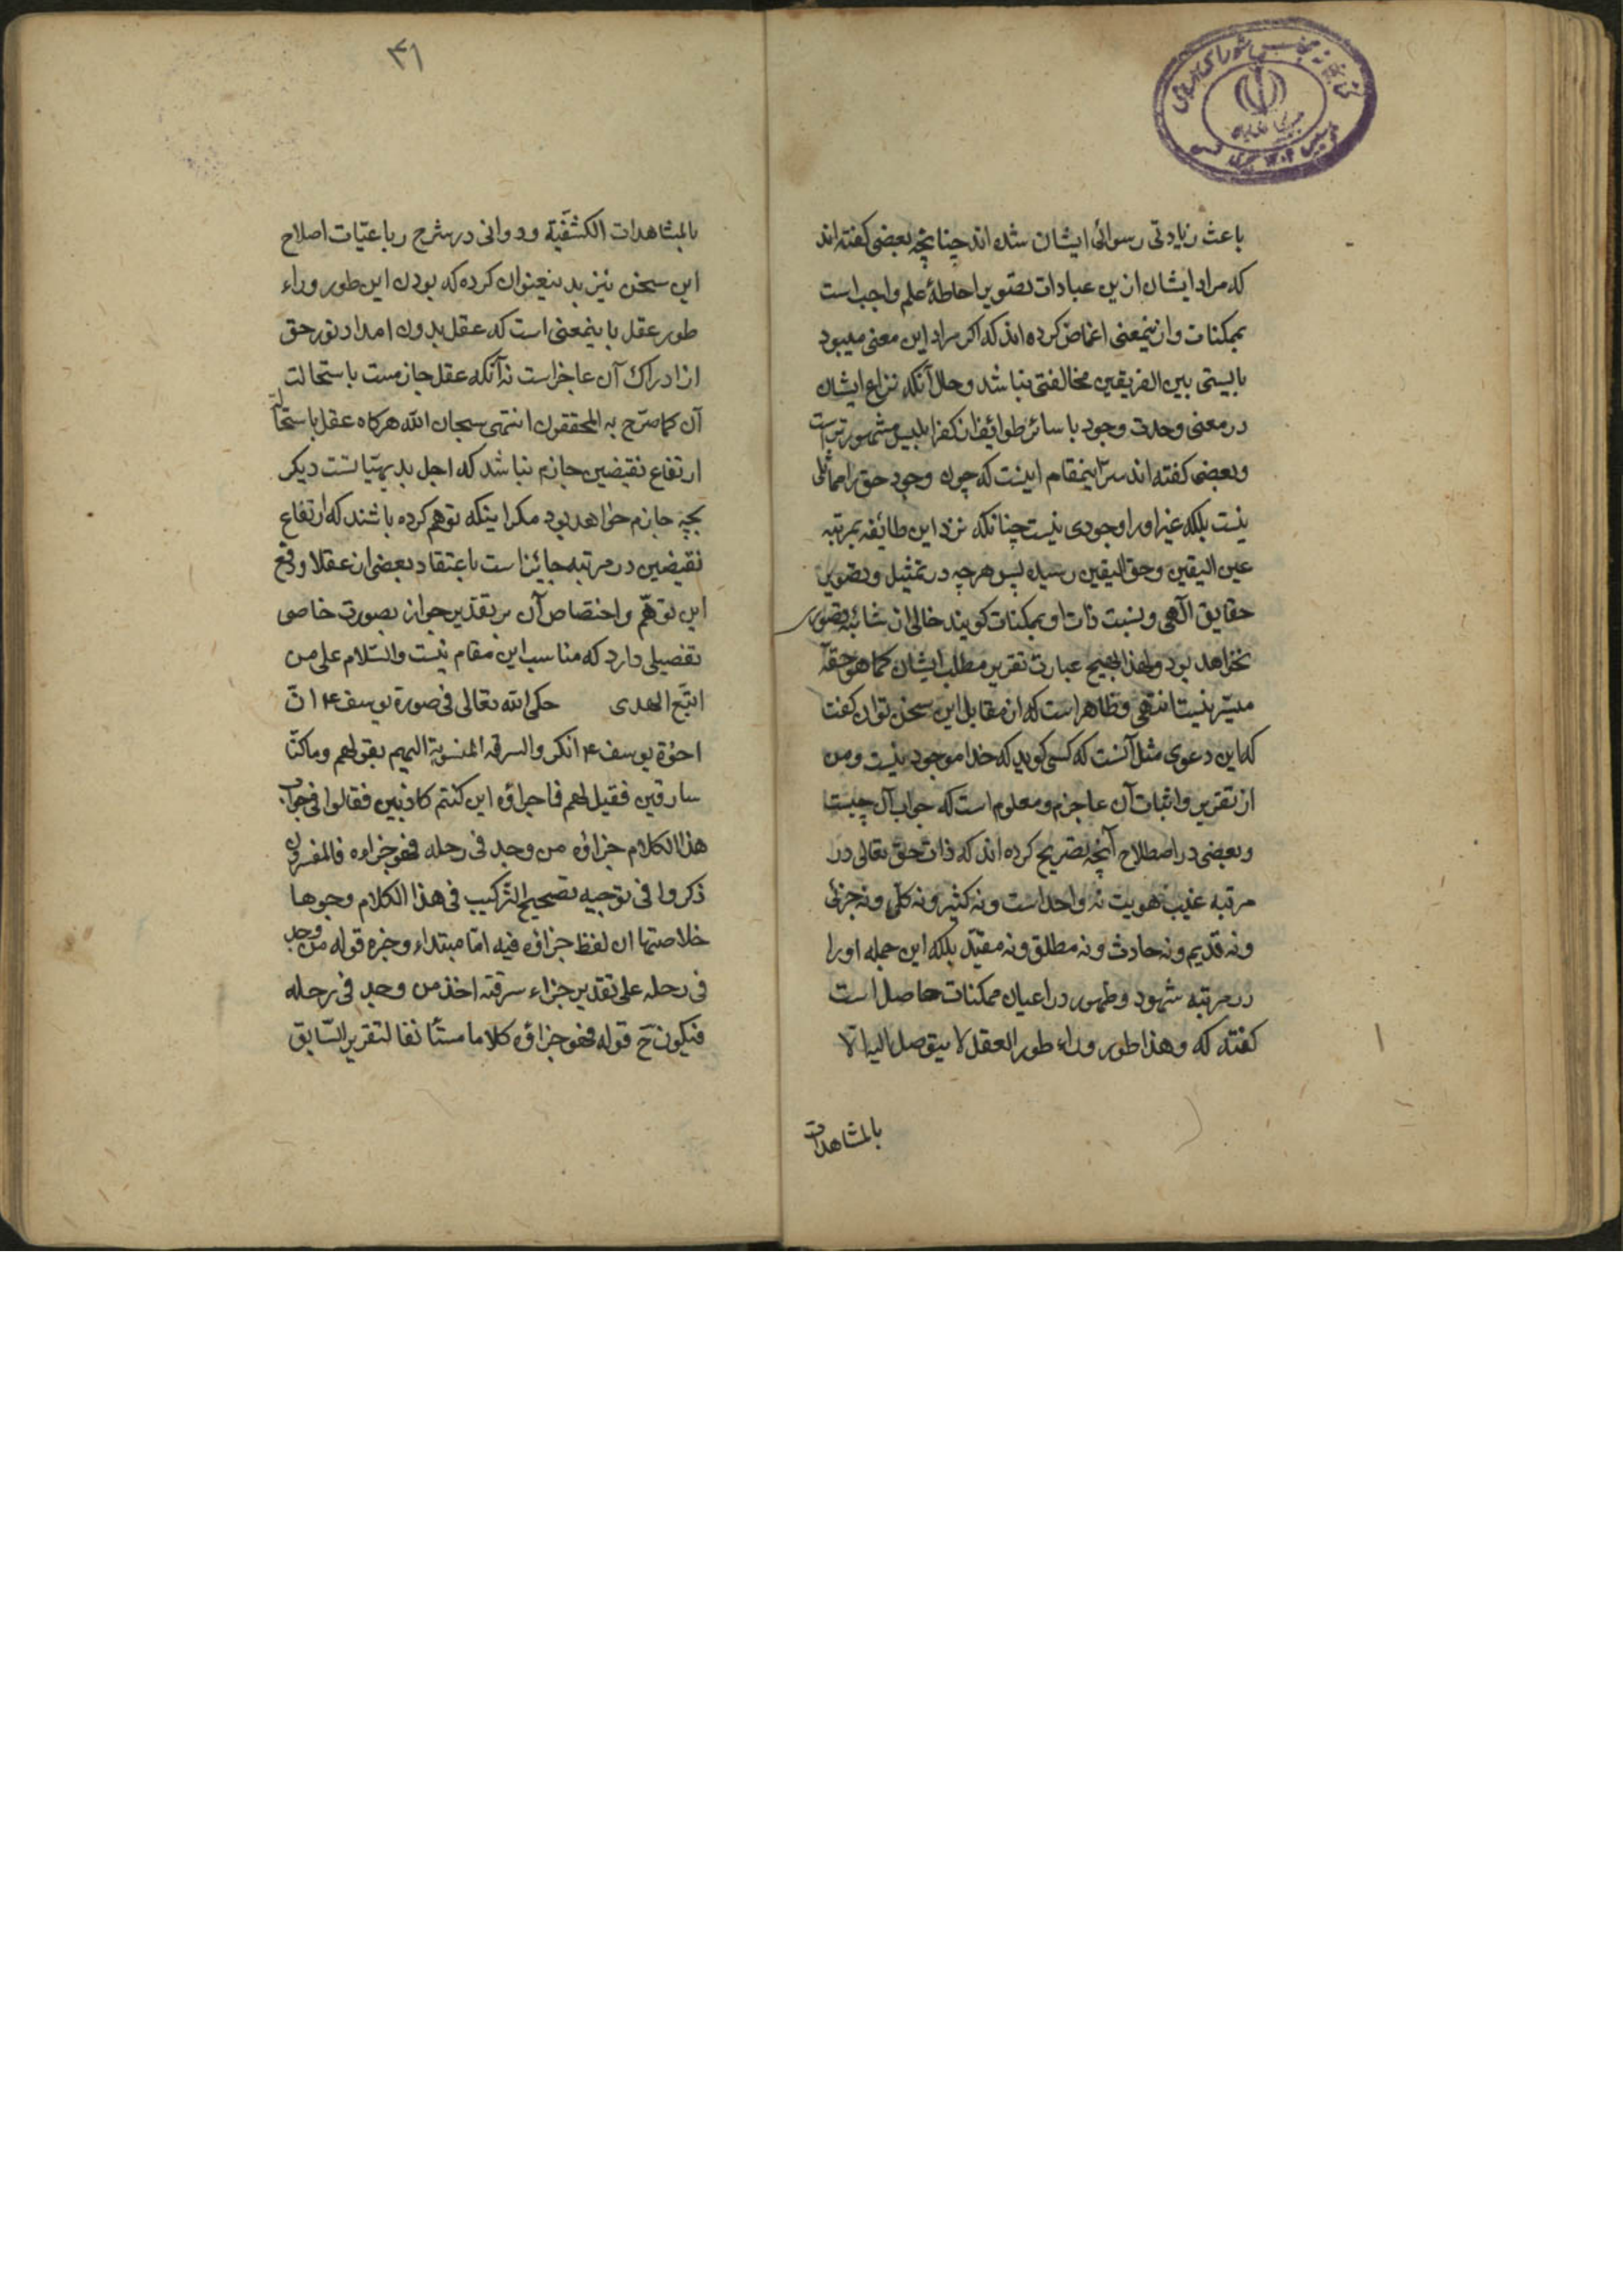 باعث زیادتی رسوائی ایشان شده اند چنانچه بعضی کفته اند
که مراد ایشان ازین عبادات تصویر احاطهٔ علم واجب است
بممکنات و ازینمعنی اغماض کرده اند که اکر مراد این معنی میبود
بایستی بین الفریقین مخالفتی نباشد و حال آنکه نزاع ایشان
در معنی وحدت وجود با سائر طوائف از کفر ابلیس مشهورتر است
و بعضی کفته اند سرّ اینمقام اینست که چون وجود حق را مماثلی
نیست بلکه غیر او را وجودی نیست چنانکه نزد این طائفه بمرتبه
عین الیقین و حق الیقین رسیده پس هرچه در تمثیل و تصویر
حقایق الٓهی و نسبت ذات او بممکنات کویند خالی از شائبه قصوری
نخواهد بود و لهذا بهیچ عبارت تقریر مطلب ایشان کما هو حقه
میسّر نیست انتهی و ظاهر است که از مقابل این سخن توان کفت
که این دعوی مثل آنست که کسی کوید که خدا موجود نیست و من
از تقریر و اثبات آن عاجزم و معلوم است که جواب آن چیست
و بعضی در اصطلاح آنچه تصریح کرده اند که ذات حق تعالی در
مرتبه غیب هویت نه واحد است و نه کثیر و نه کلّی و نه جزئی
و نه قدیم و نه حادث و نه مطلق و نه مقیّد بلکه این جمله او را
در مرتبه شهود و ظهور در اعیان ممکنات حاصل است
کفته که و هذا طور وراء طور العقل لا یتوصل الیه الّا
بالمشاهدات
۴۱
بالمشاهدات الکشفیّة و دوانی در شرح رباعیّات اصلاح
این سخن نیز بدینعنوان کرده که بودن این طور وراء
طور عقل باینمعنی است که عقل بدون امداد نور حق
از ادراک آن عاجز است نه آنکه عقل جازمست باستحالت
آن کما صرّح به المحققون انتهی سبحان الله هرکاه عقل باستحالت
ارتفاع نقیضین جازم نباشد که اجل بدیهیّاتست دیکر
بچه جازم خواهد بود مکر اینکه توهم کرده باشند که ارتفاع
نقیضین در مرتبه جائز است باعتقاد بعضی از عقلا و دفع
این توهّم و اختصاص آن بر تقدیر جواز بصورت خاصی
تفصیلی دارد که مناسب این مقام نیست والسّلام علی من
اتبّع الهدی حکی الله تعالی فی صورة یوسف ۴ انّ
اخوة یوسف ۴ انکروا السرقه المنسوبة الیهم بقولهم و ماکنّا
سارقین فقیل لهم فما جزاؤه ان کنتم کاذبین فقالوا فی جواب
هذا الکلام جزاؤه من وجد فی رحله فهو جزاوه فالمفسرون
ذکروا فی توجیه تصحیح الترکیب فی هذا الکلام وجوها
خلاصتها ان لفظ جزاؤه فیه امّا مبتداء و خبره قوله من وجد
فی رحله علی تقدیر جزاء سرقته اخذ من وجد فی رحله
فیکون حَ قوله فهو جزاؤه کلاما مستأنفا لتقریر السّابق